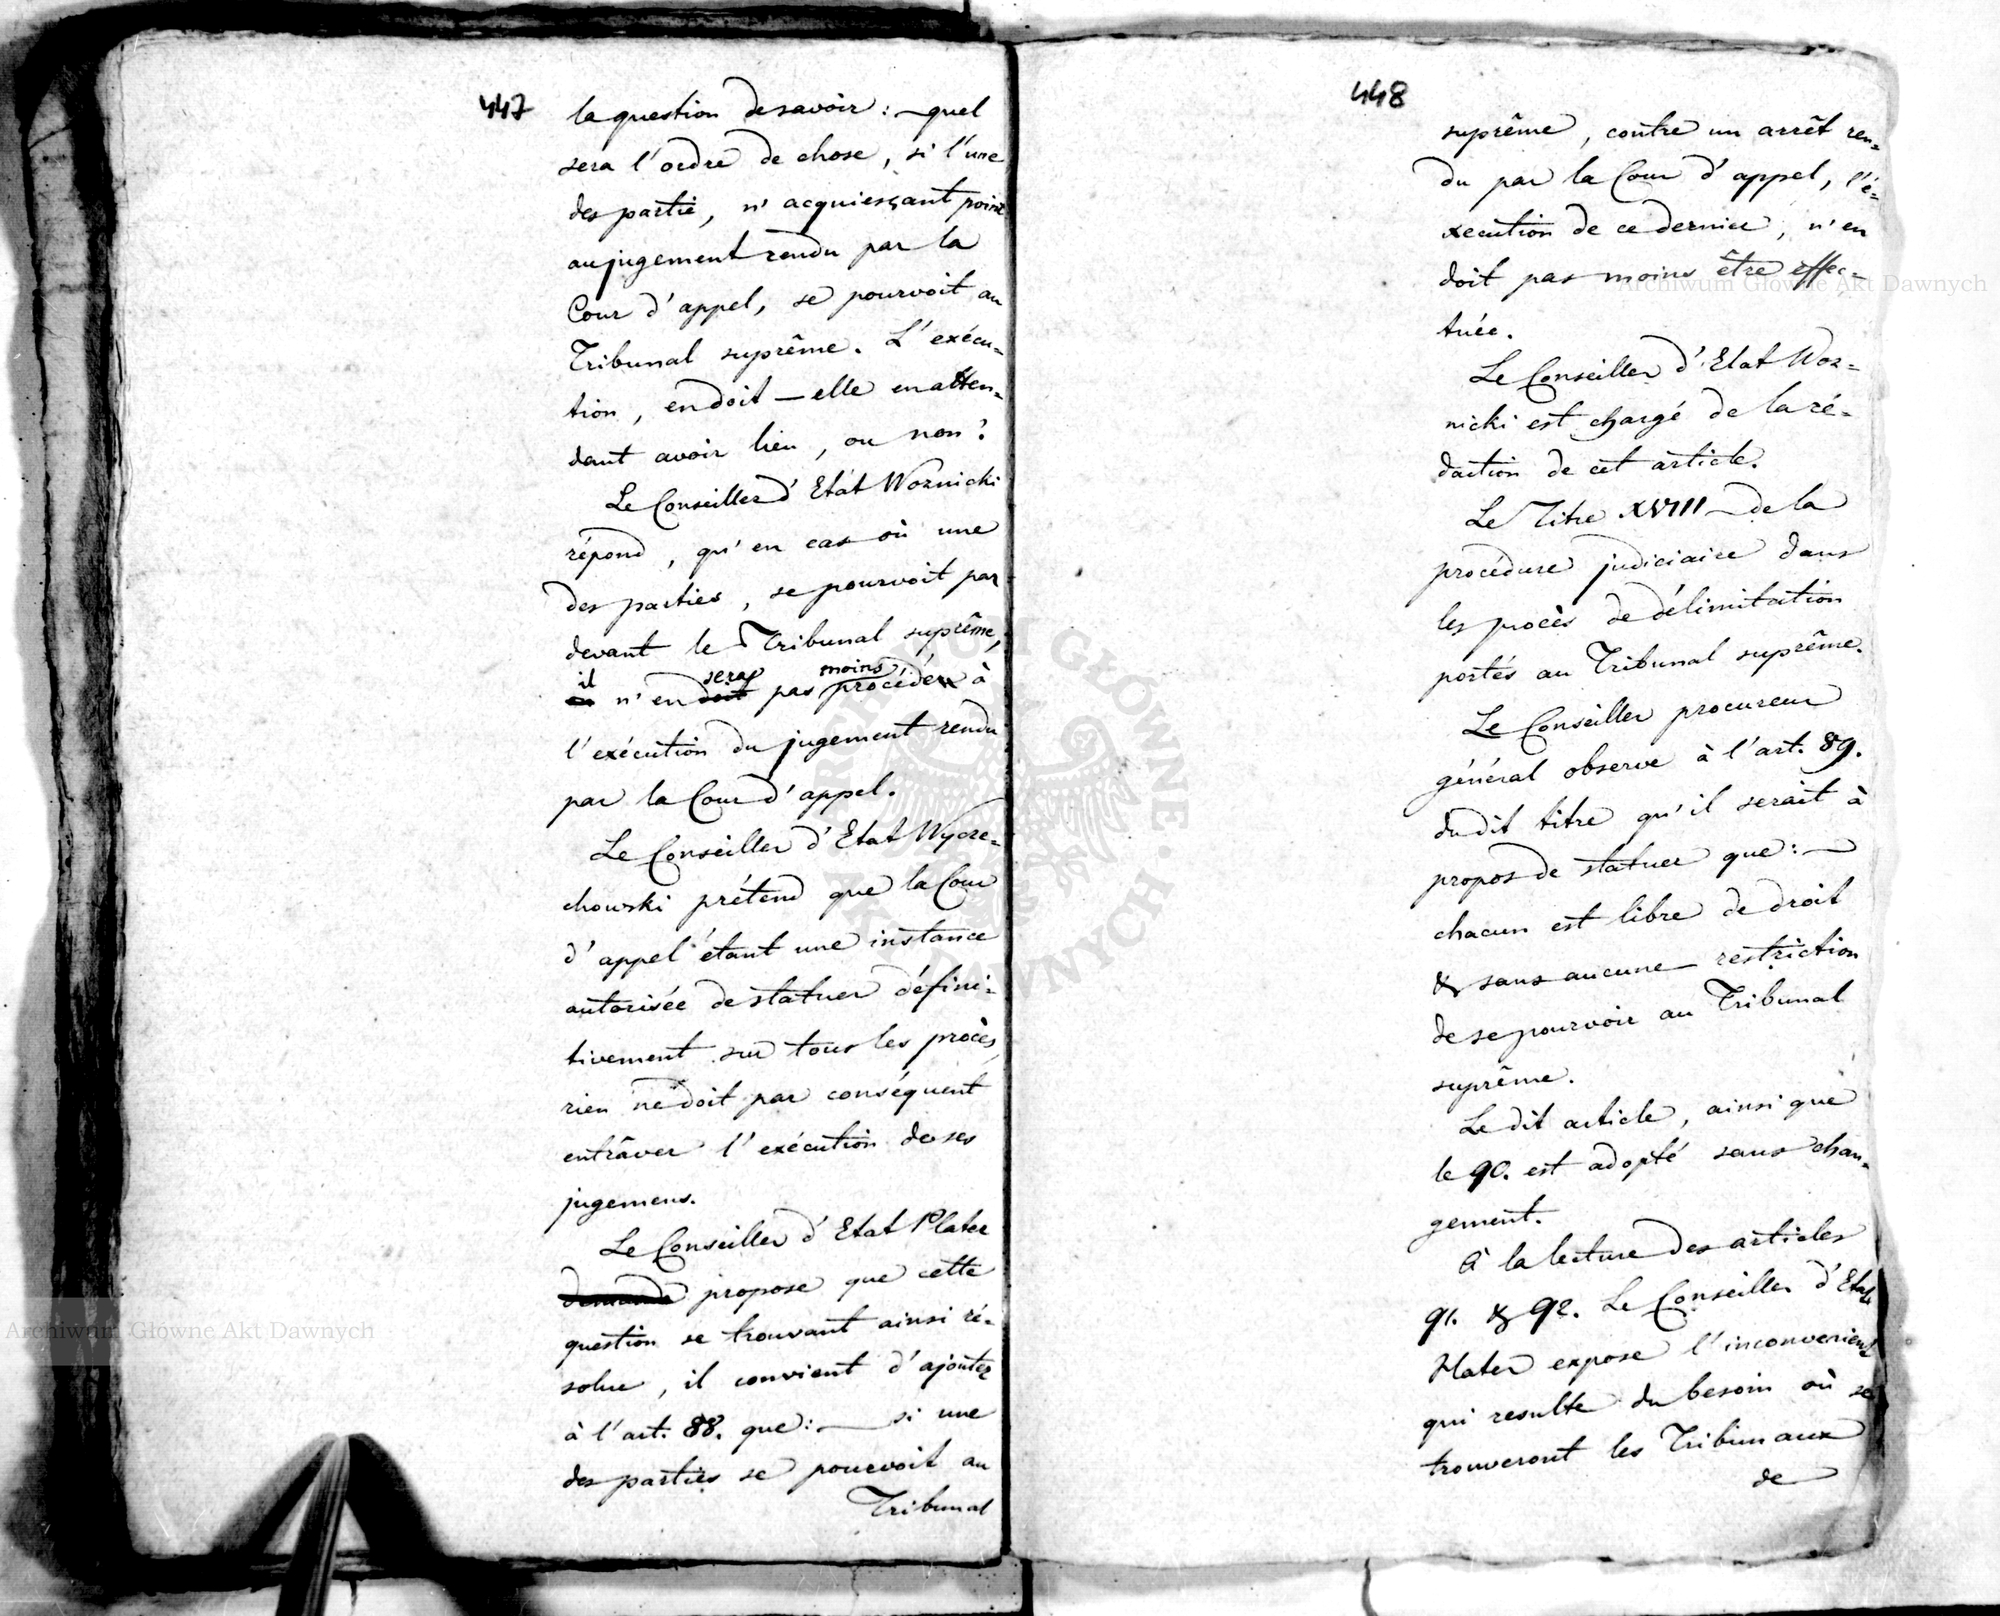 447
la question de savoir : — quel
sera l'ordre de chose, si l'une
des partie, n'acquiesçant point
au jugement rendu par la
Cour d'appel, se pourvoit au
Tribunal suprême. L'exécu-
tion, en doit-elle en atten-
dant avoir lieu, ou non?
Le Conseiller d'Etat Woznicki
répond, qu'en cas où une
des parties, se pourvoit par
devant le Tribunal suprême,
il n'en sera pas moins procédé à
l'exécution du jugement rendu
par la Cour d'appel.
Le Conseiller d'Etat Wycze-
chowski prétend que la Cour
d'appel étant une instance
autorisée de statuer défini-
tivement sur tous les procès,
rien ne doit par conséquent
entrâver l'exécution de ses
jugemens.
Le Conseiller d'Etat Plater
demande propose que cette
question se trouvant ainsi ré-
solue, il convient d'ajouter
à l'art. 88. que : — si une
des parties se pourvoit au
Tribunal
448
suprême, contre un arrêt ren-
du par la Cour d'appel, l'é-
xecution de ce dernier, n'en
doit pas moins être effec-
tuée.
Le Conseiller d'Etat Woz-
nicki est chargé de la ré-
daction de cet article.
Le Titre XVIII de la
procédure judiciaire dans
les procès de délimitation
portés au Tribunal suprême.
Le Conseiller procureur
général observe à l'art. 89.
du dit titre qu'il serait à
propos de statuer que : —
chacun est libre de droit
& sans aucune restriction
de se pourvoir au Tribunal
suprême.
Le dit article, ainsi que
le 90. est adopté sans chan-
gement.
À la lecture des articles
91. & 92. Le Conseiller d'Etat
Plater expose l'inconvenient
qui resulte du besoin où se
trouveront les Tribunaux
de
Archiwum Główne Akt Dawnych
Archiwum Główne Akt Dawnych
ARCHIWUM GŁÓWNE AKT DAWNYCH